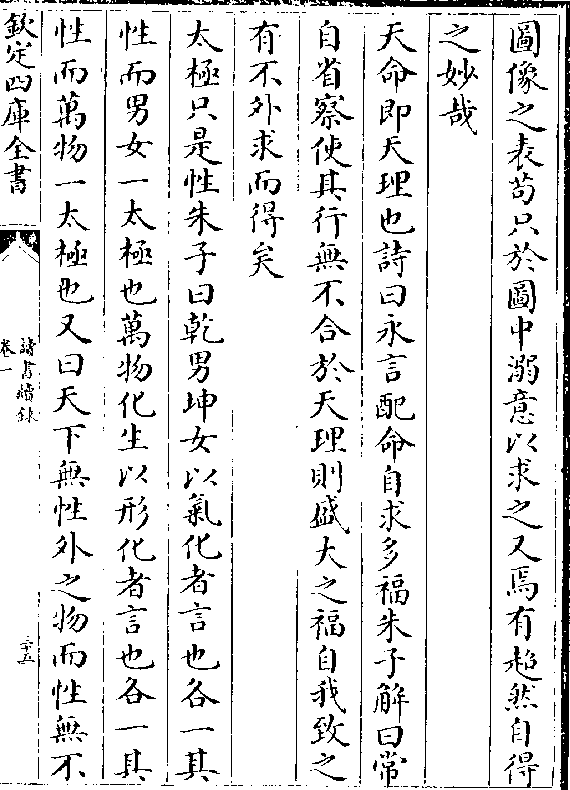 圖像之表苟只於圖中溺意以求之又焉有超然自得
之妙哉
天命即天理也詩曰永言配命自求多福朱子解曰常
自省察使其行無不合於天理則盛大之福自我致之
有不外求而得矣
太極只是性朱子曰乾男坤女以氣化者言也各一其
性而男女一太極也萬物化生以形化者言也各一其
性而萬物一太極也又曰天下無性外之物而性無不
欽定四庫全書
讀書續錄
卷一
三十五